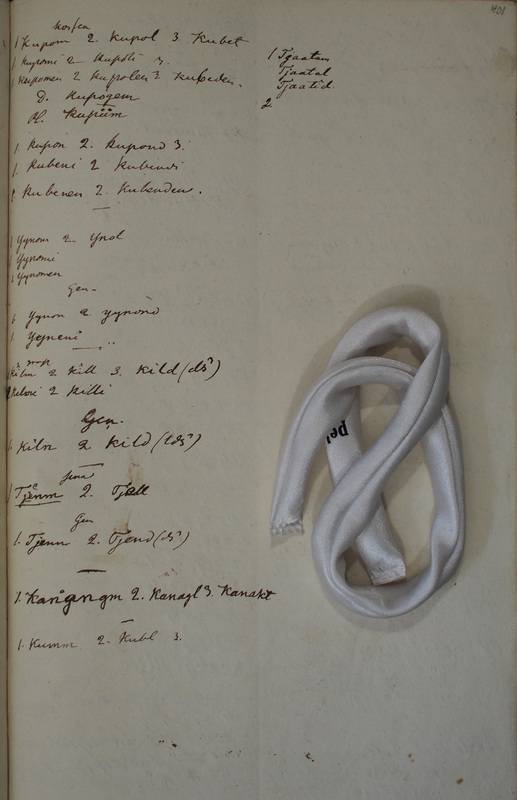 401
1 Kupom 2. Kupol 3 Kubet
1. Kupomi 2 Kupoli 3.
1. Kupomen 2 Kupolen 3 Kubeden.
D. Kupogem
Pl. Kupiim
1. Kupon 2. Kupond 3.
1. Kubeni 2 Kubendi
1. Kubenen 2. Kubenden.
1 Yynom 2 Ynol
1 Yynomi
1 Yynomen
Gen.
1. Yynon 2 yynond
1. Yejneni
1 Kilm 2 Kill 3. Kild (ds)
2 Killi
Gen.
1. Kiln 2 Kild (lds)
1 Tjenm 2. Tjell
Gen
1. Tjenn 2. Tjend (ds)
1. Kanangm 2. Kanagl 3. Kanakt
1. Kumm 2. Kubl 3.
1 Tjaatam
Tjaatal
Tjaatid.
2.